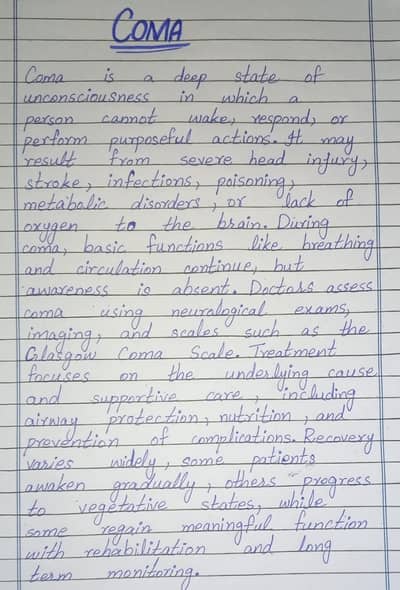 COMA
Coma is a deep state of
unconsciousness in which a
person cannot wake, respond, or
perform purposeful actions. It may
result from severe head injury,
stroke, infections, poisoning,
metabolic disorders, or lack of
oxygen to the brain. During
coma, basic functions like breathing
and circulation continue, but
awareness is absent. Doctors assess
coma using neurological exams,
imaging, and scales such as the
Glasgow Coma Scale. Treatment
focuses on the underlying cause
and supportive care, including
airway protection, nutrition, and
prevention of complications. Recovery
varies widely, some patients
awaken gradually, others progress
to vegetative states, while
some regain meaningful function
with rehabilitation and long
term monitoring.